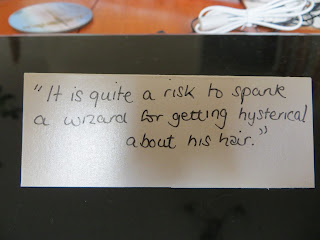 "It is quite a risk to spank
a wizard for getting hysterical
about his hair."